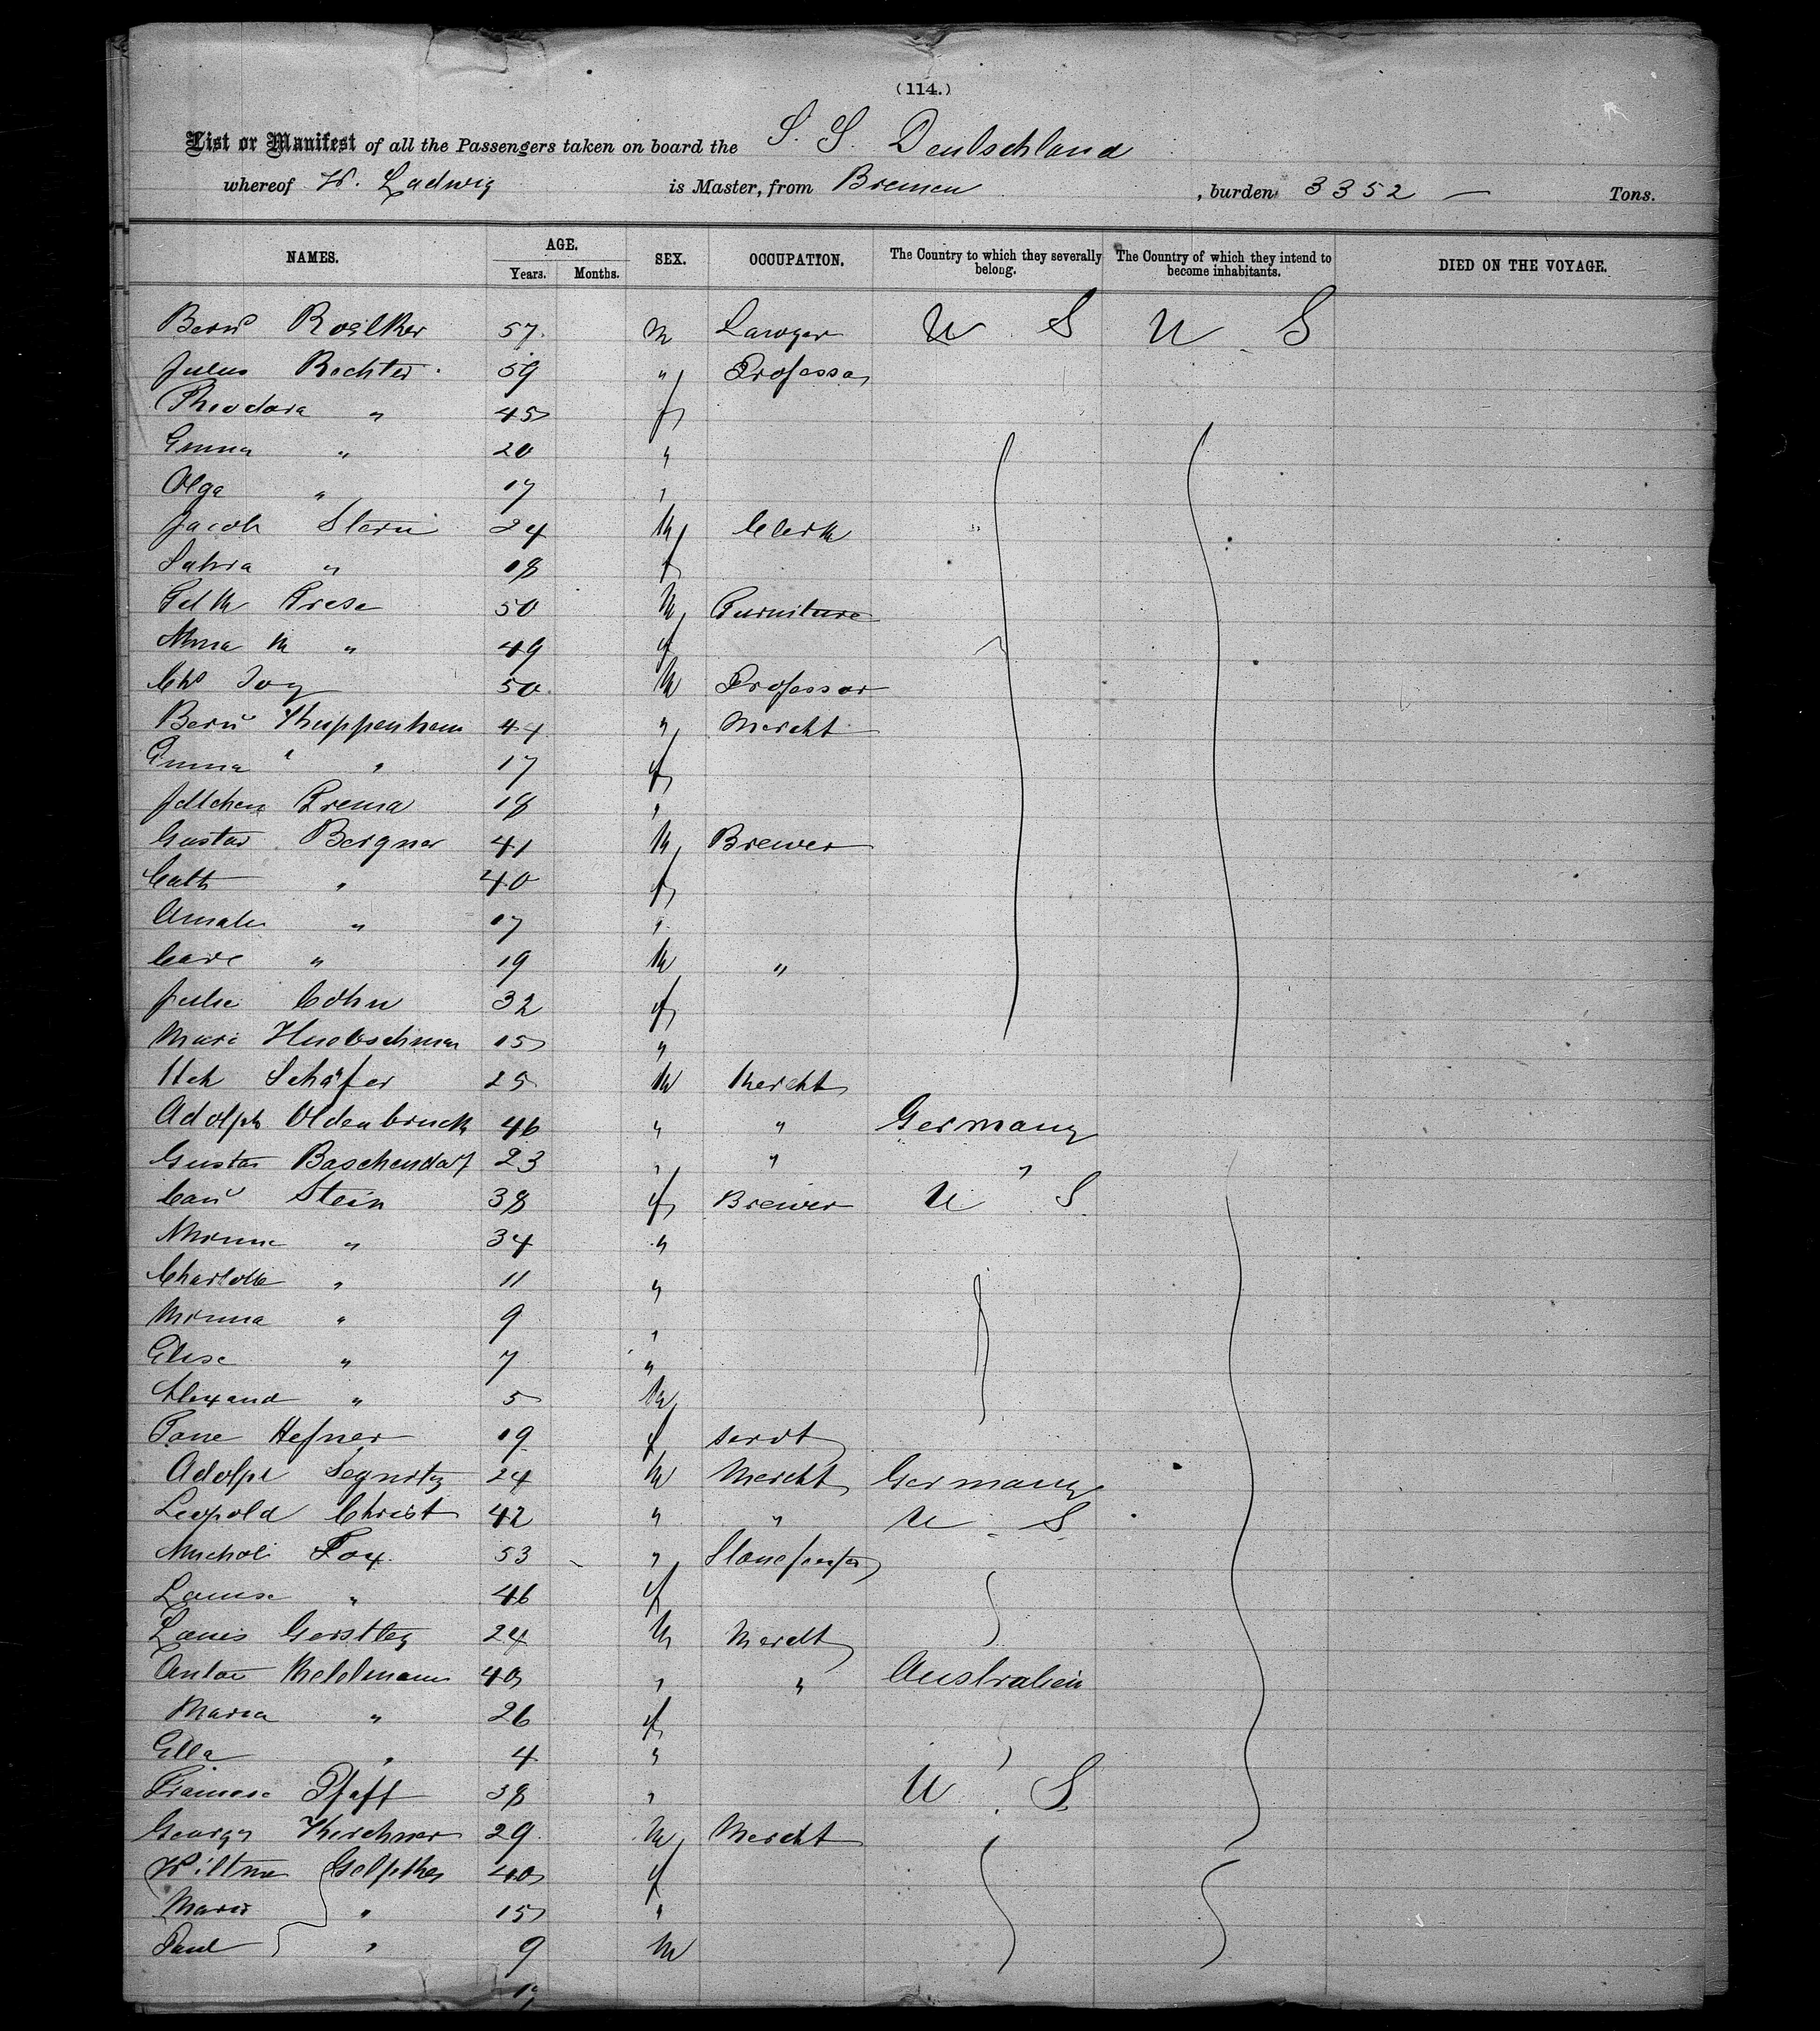 (114.)
List or Manifest of all the Passengers taken on board the S. S. Deutschland
whereof W. Ladwig is Master, from Bremen , burden 3352 — Tons.
NAMES. AGE. Years. Months. SEX. OCCUPATION. The Country to which they severally belong. The Country of which they intend to become inhabitants. DIED ON THE VOYAGE.
Bernd Roelker 57 M Lawyer U S U S
Julius Rechter 59 " Professor
Theodora " 45 f
Emma " 20 "
Olga " 17 "
Jacob Stern 24 M Clerk
Sahra " 18 f
Frese 50 M Furniture
Anna M " 49 f
Chs Toy 50 M Professor
Bern Kuppenheim 44 " Mercht
Emma " " 17 f
Jettchen 18 "
Gustav Bergner 41 M Brewer
Cath " 40 f
Amalie " 17 "
Carl " 19 M "
Julie Cohn 32 f
Marie Huebschman 15 "
Hch Schäfer 25 M Mercht
Adolph Oldenbruck 46 " " Germany
Gustav Baschendorf 23 " " "
Stein 38 f Brewer U S
Minna " 34 "
Charlotte " 11 "
Minna " 9 "
Elise " 7 "
Alexand " 5 M
Hefner 19 f servt
Adolph Segnitz 24 M Mercht Germany
Leopold Christ 42 " " U S
Fox 53 "
Louise " 46 f
Louis Gerstley 24 M Mercht
Anton 40 " " Australien
Maria " 26 f
Ella " 4 "
Pfaff 38 " U S
George Kirchner 29 M Mercht
Gelpthe 40 f
Marie " 15 "
Paul " 9 M